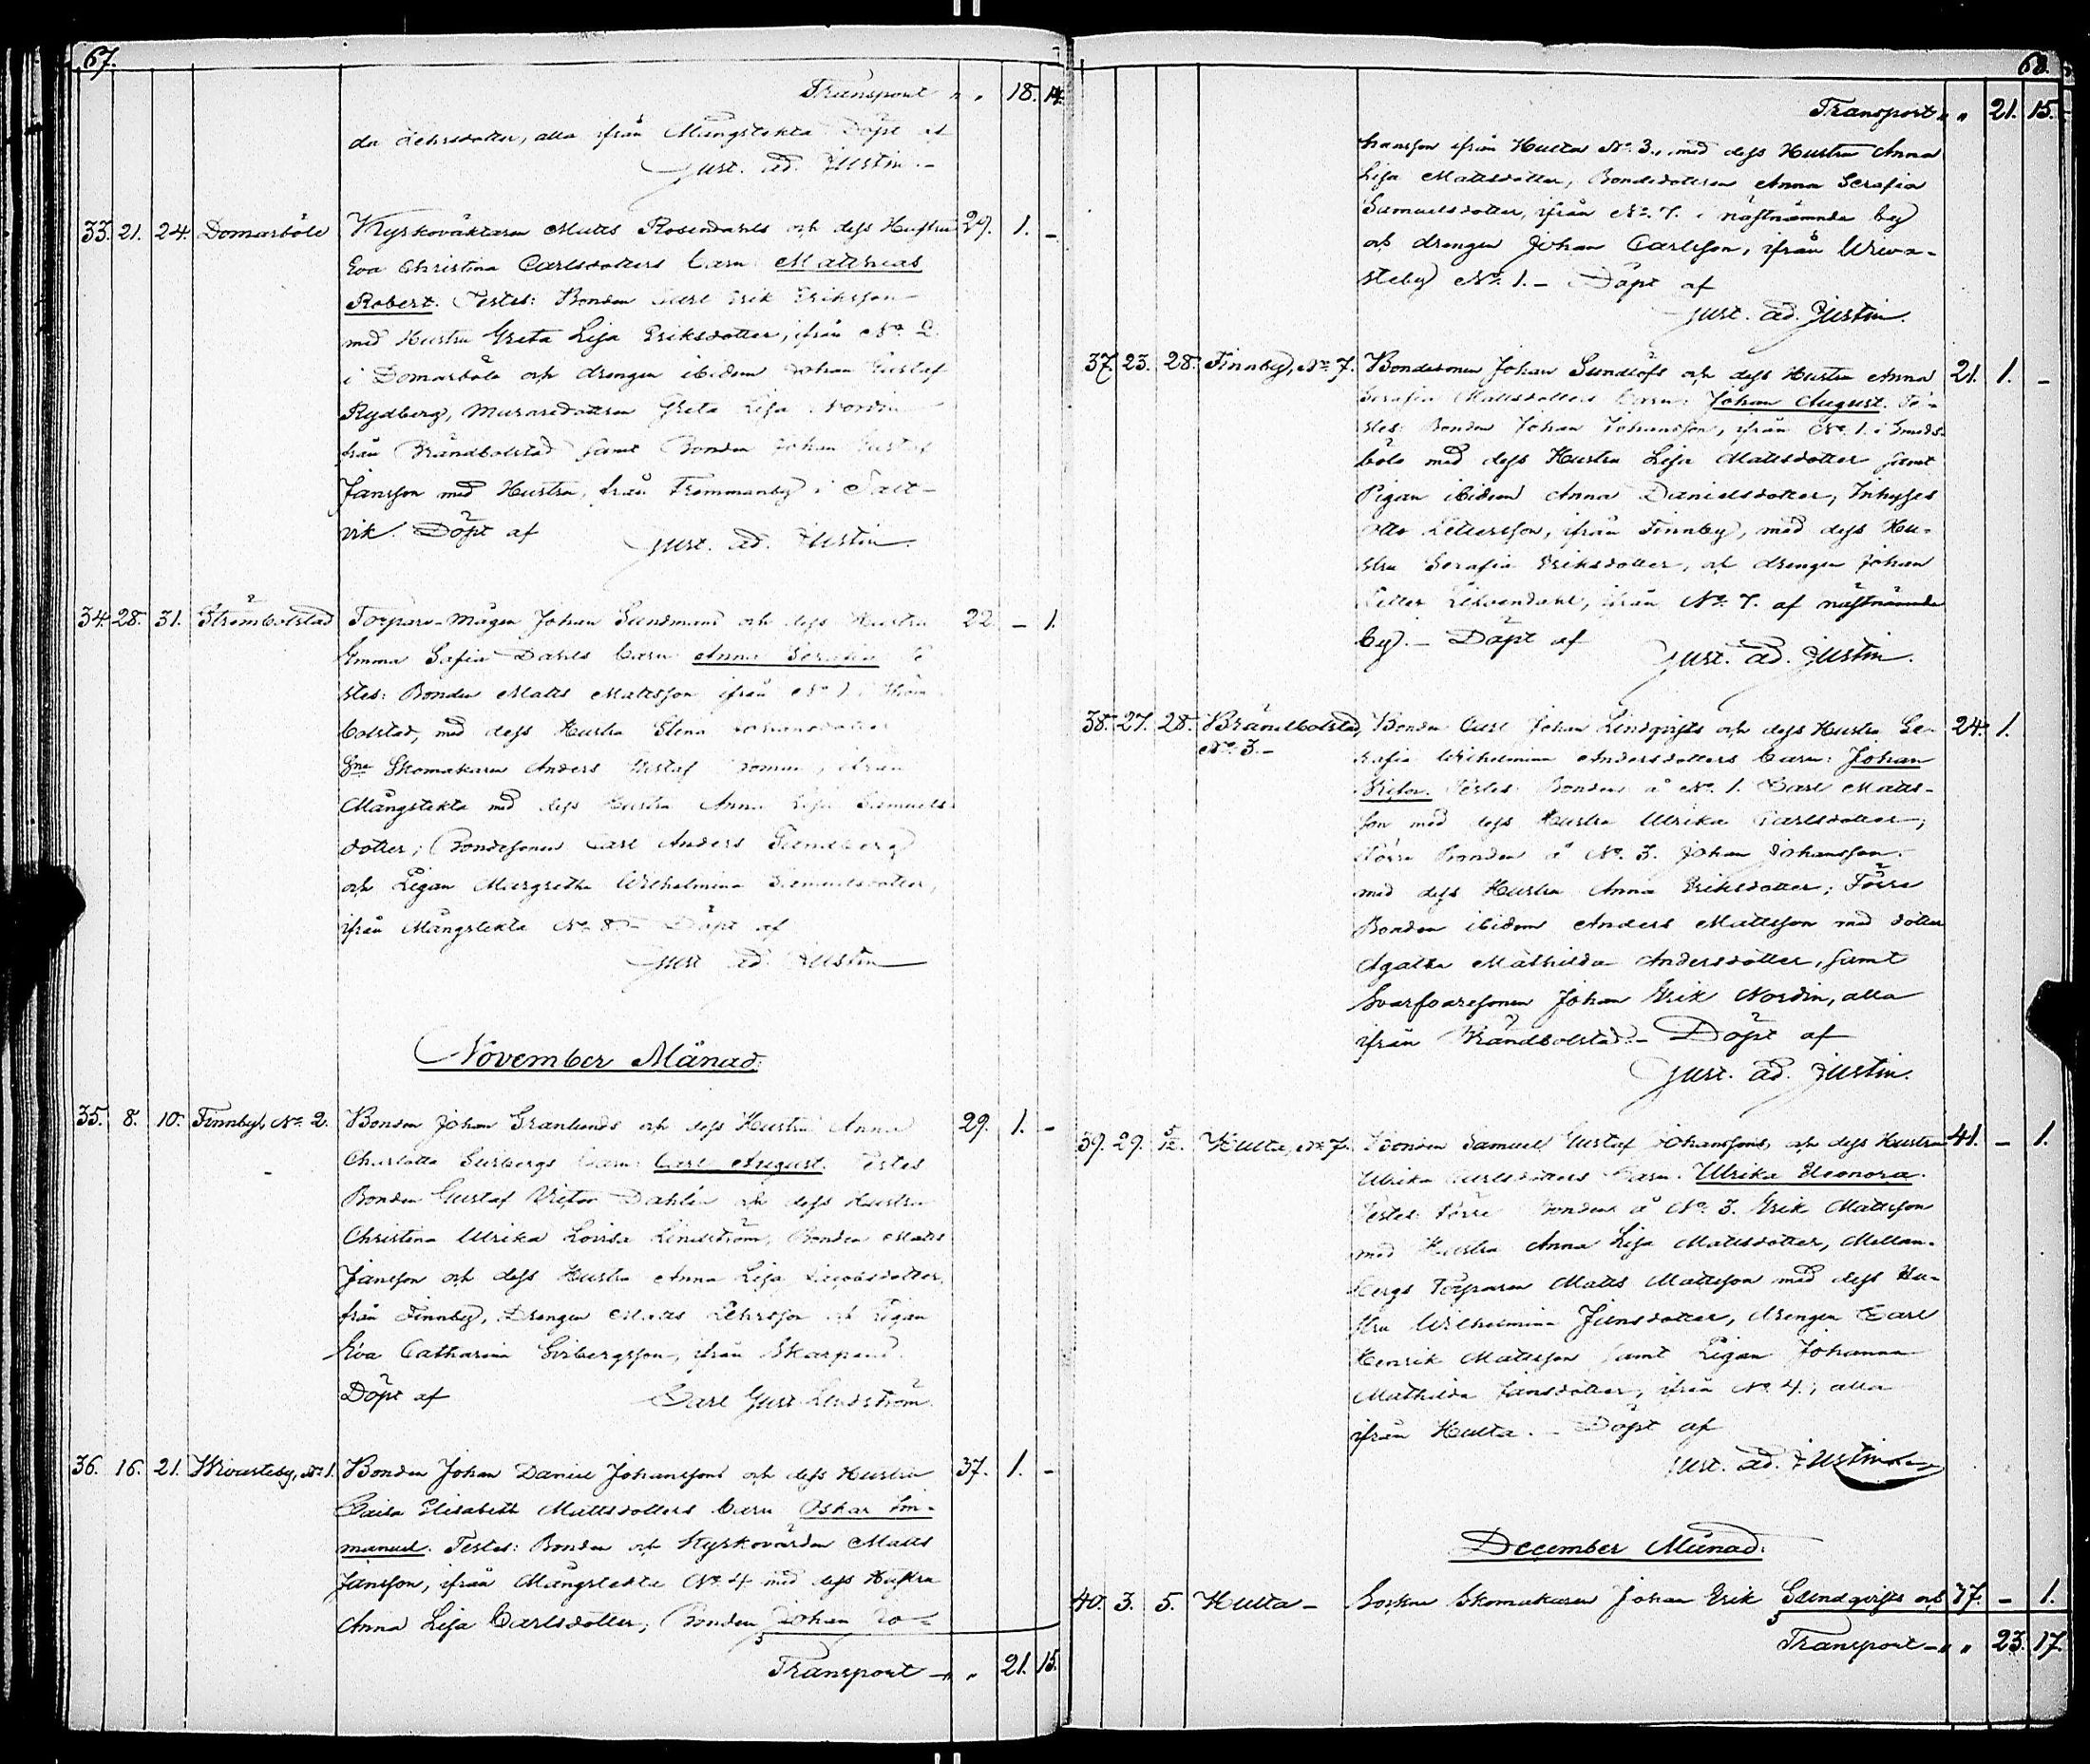 67.
Transport " " 18. 14.
da Pehrsdotter, alla ifrån Mångstekta Döpt af
Gust. Ad. Justin.
33. 21. 24. Domarböle Kyrkoväktaren Matts Rosendahls och dess Hustru 29. 1. -
Eva Christina Carlsdotters barn Matthias
Robert. Testes: Bonden Carl Erik Eriksson
med Hustru Greta Lisa Eriksdotter, ifrån No 2.
i Domarböle och drengen ibidem Johan Gustaf
Rydberg, Muraredottren Greta Lisa Nordin
från Brändbolstad samt Bonden Johan Gustaf
Jansson med Hustru, från Frommanby i Salt-
vik. Döpt af Gust. Ad. Justin.
34. 28. 31. Strömbolstad Torpare-Mågen Johan Sundmans och dess Hustru 22. - 1.
Emma Sofia Dahls barn Anna Serafia Te
stes: Bonden Matts Mattsson ifrån No 1 i Ström
bolstad, med dess Hustru Stina Johansdotter
Sne Skomakaren Anders Gustaf Boman, ifrån
Mångstekta med dess Hustru Anna Lisa Samuels
dotter; Bondesonen Carl Anders Sundberg
och Pigan Margretha Wilhelmina Samuelsdotter,
ifrån Mångstekta No 8. - Döpt af
Gust. Ad. Justin
November Månad:
35. 8. 10. Finnby, No 2. Bonden Johan Granlunds och dess Hustru Anna 29. 1. -
Charlotta Sirbergs barn: Carl August. Testes
Bonden Gustaf Victor Dahlén och dess Hustru
Christina Ulrika Lovisa Lindström, Bonden Matts
Jansson och dess Hustru Anna Lisa Jacobsdotter,
från Finnby, Drengen Matts Pehrsson och Pigan
Eva Catharina Sirbergsson, ifrån Skarpans.
Döpt af Carl Gust. Lindström.
36. 16. 21. Wivasteby, No 1. Bonden Johan Daniel Johanssons och dess Hustru 37. 1. -
Caisa Elisabeth Mattsdotters barn Oskar Em-
manuel. Testes: Bonden och Kyrkovärden Matts
Jansson, ifrån Mångstekta No 4 med dess Hustru
Anna Lisa Carlsdotter; Bonden Johan Jo-
Transport - " " 21. 15.
68.
Transport " " 21. 15.
hansson ifrån Hulta No 3., med dess Hustru Anna
Lisa Mattsdotter, Bondedottren Anna Serafia
Samuelsdotter, ifrån No 7. i nästnämnde by
och drengen Johan Carlsson, ifrån Wiva-
steby No 1. - Döpt af
Gust. Ad. Justin.
37. 23. 28. Finnby, No 7. Bondesonen Johan Sundlöfs och dess Hustru Anna 21. 1. -
Serafia Mattsdotters barn: Johan August. Te-
stes: Bonden Johan Johansson, ifrån No 1. i Smeds-
böle med dess Hustru Lisa Mattsdotter samt
Pigan ibidem Anna Danielsdotter, Inhyses
Otto Pettersson, ifrån Finnby, med dess Hu-
stru Serafia Eriksdotter, och drengen Johan
Petter Liljendahl, ifrån No 7. af nästnämnde
by. - Döpt af Gust. Ad. Justin.
38. 27. 28. Brändbolstad, Bonden Carl Johan Lindqvists och dess Hustru Se- 24. 1.
No 3. - rafia Wilhelmina Andersdotters barn: Johan
Victor. Testes: Bonden å No 1. Carl Matts-
son med dess Hustru Ulrika Carlsdotter,
Förre Bonden å No 3. Johan Johansson.
med dess Hustru Anna Eriksdotter; Förre
Bonden ibidem Anders Mattsson med dotter
Agatha Mathilda Andersdotter, samt
Svarfvaresonen Johan Erik Nordin, alla
ifrån Brändbolstad. - Döpt af
Gust. Ad. Justin.
39. 29. 5/12. Hulta, No 7. Bonden Samuel Gustaf Johanssons och dess Hustru 41. - 1.
Ulrika Carlsdotters barn: Ulrika Eleonora.
Testes: Förre Bonden å No 3. Erik Mattsson
med Hustru Anna Lisa Mattsdotter, Mellan-
bergs Torparen Matts Mattsson med dess Hu-
stru Wilhelmina Jansdotter, drengen Carl
Henrik Mattsson samt Pigan Johanna
Mathilda Jansdotter, ifrån No 4., alla
ifrån Hulta. - Döpt af
Gust. Ad. Justin
December Månad:
40. 3. 5. Hulta - Sockne Skomakaren Johan Erik Strandqvists och 37. - 1.
Transport - " " 23. 17.